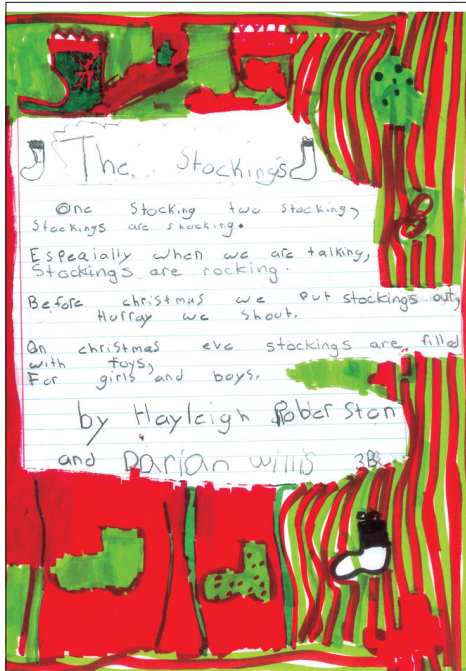 The Stockings
One Stocking two Stocking,
Stockings are shocking.
Especially when we are talking,
Stockings are rocking.
Before christmas we put stockings out,
Hurray we shout.
On christmas eve stockings are filled
with toys,
For girls and boys.
by Hayleigh Roberston
and Darian willis 3B